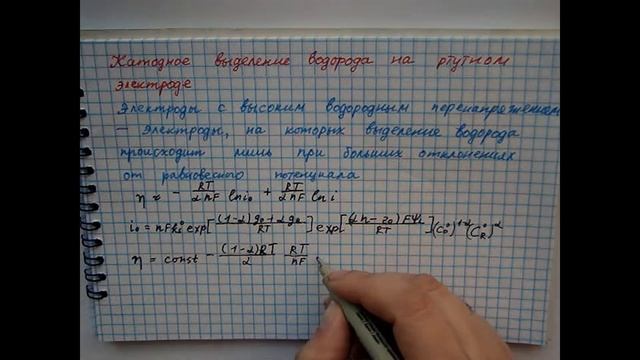 Катодное выделение водорода на ртутном
электроде
Электроды с высоким водородным перенапряжением
– электроды, на которых выделение водорода
происходит лишь при больших отклонениях
от равновесного потенциала
η ≈ - RT/2nF ln i₀ + RT/2nF ln i
i₀ = nFk₀° exp[(1-2)g₀+2g₀/RT] exp[(2n-z₀)Fψ₁/RT](C₀°)¹⁻²(C_R°)²
η = const - (1-2)RT/2 RT/nF